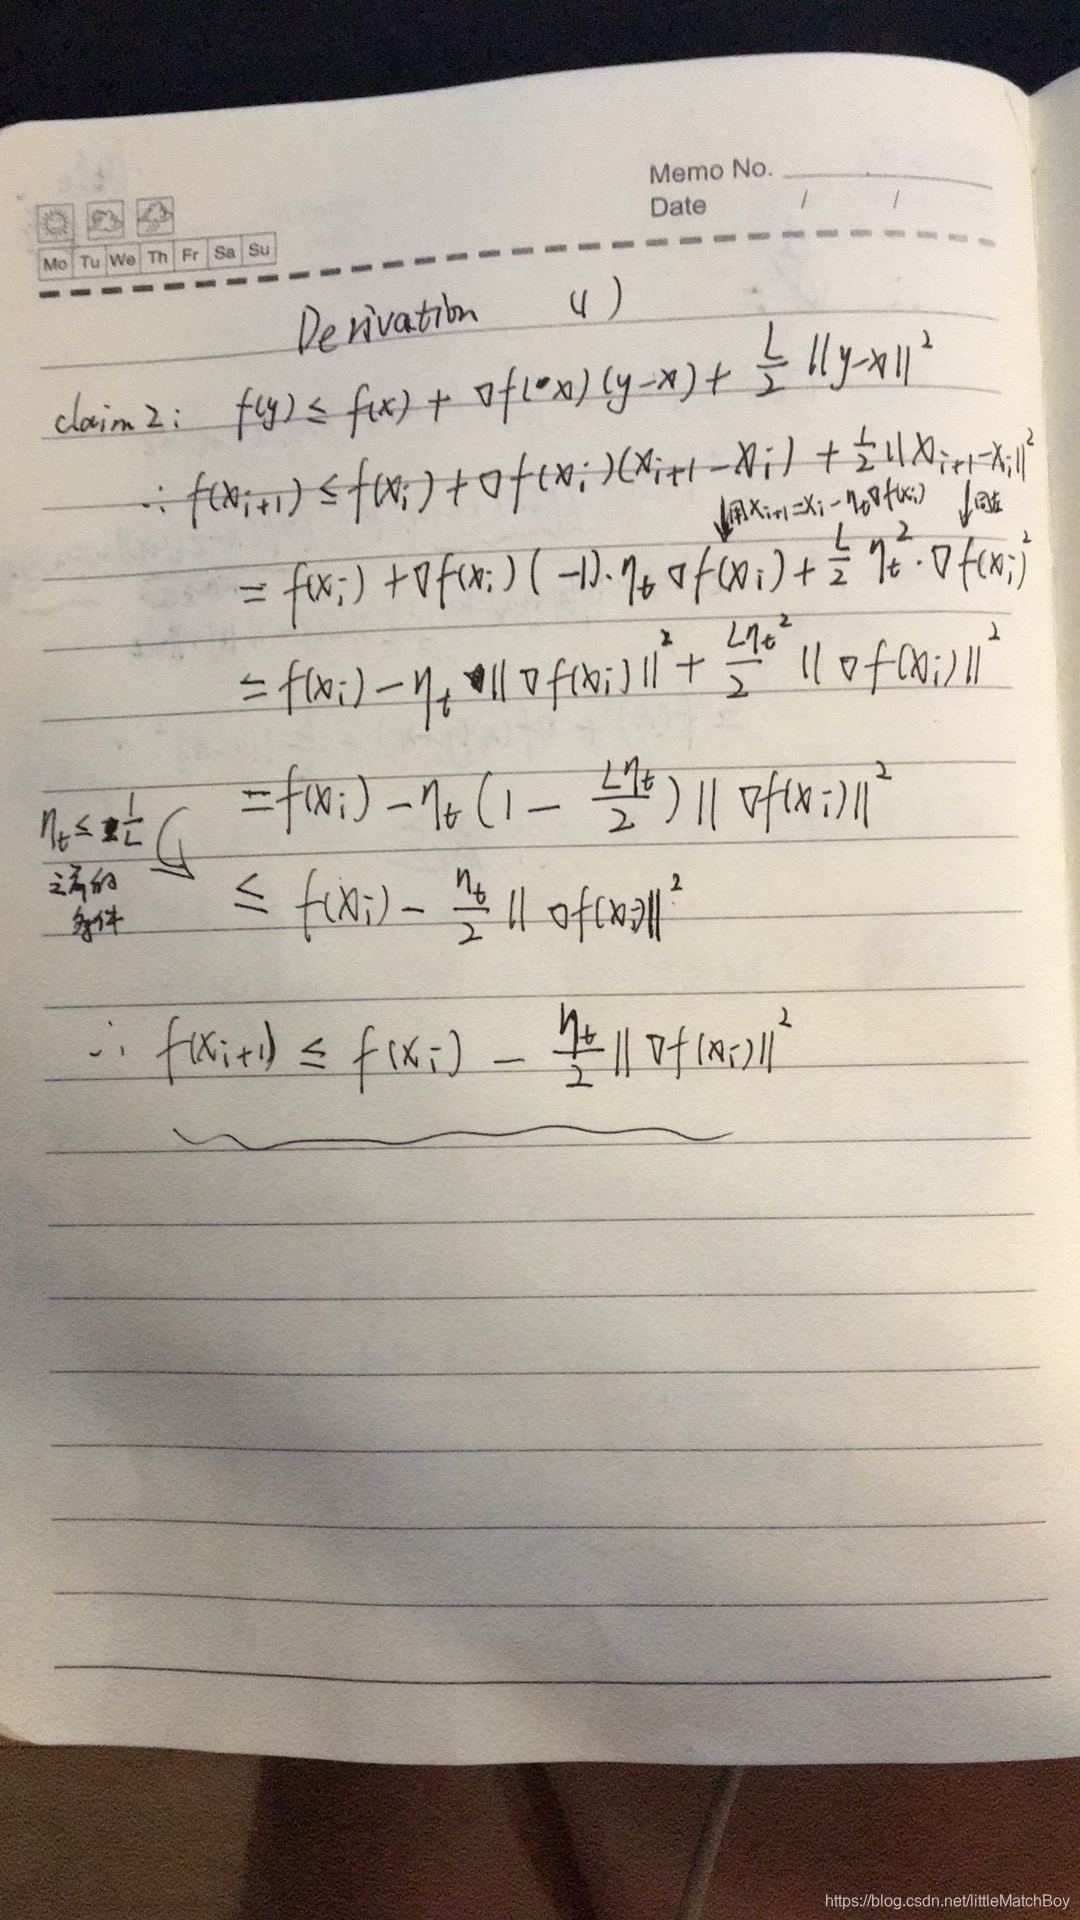 Memo No.
Date / /
Mo Tu We Th Fr Sa Su
Derivation (1)
claim 2: f(y) ≤ f(x) + ∇f(x)(y-x) + L/2 ||y-x||²
∴ f(x_{i+1}) ≤ f(x_i) + ∇f(x_i)(x_{i+1} - x_i) + L/2 ||x_{i+1} - x_i||²
↓用x_{i+1}=x_i - η_t∇f(x_i) ↓同左
= f(x_i) + ∇f(x_i)(-1)·η_t∇f(x_i) + L/2 η_t²·∇f(x_i)²
= f(x_i) - η_t ||∇f(x_i)||² + Lη_t²/2 ||∇f(x_i)||²
= f(x_i) - η_t(1 - Lη_t/2) ||∇f(x_i)||²
η_t ≤ 1/L
之前的
条件
≤ f(x_i) - η_t/2 ||∇f(x_i)||²
∴ f(x_{i+1}) ≤ f(x_i) - η_t/2 ||∇f(x_i)||²
https://blog.csdn.net/littleMatchBoy